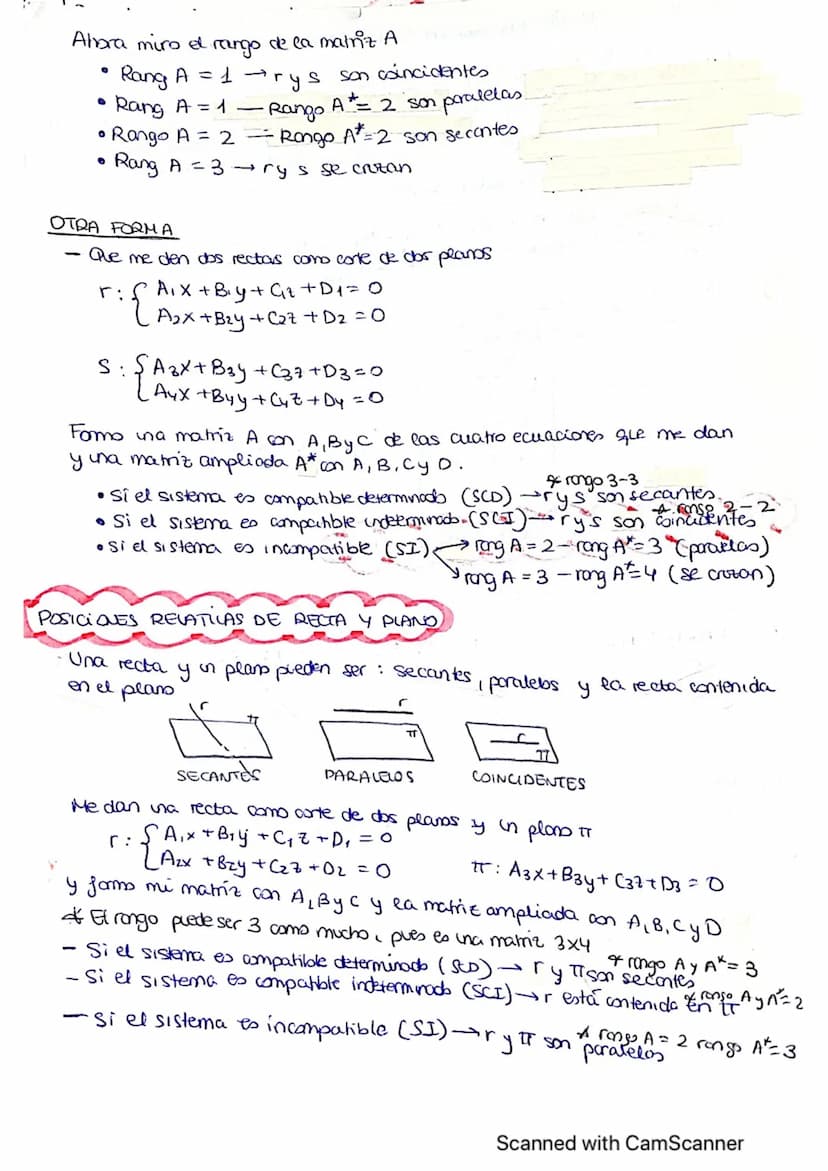 Ahora miro el rango de la matriz A
• Rang A = 1 → r y s son coincidentes
• Rang A = 1 — Rango A* = 2 son paralelas
• Rango A = 2 — Rango A* = 2 son secantes
• Rang A = 3 → r y s se cruzan
OTRA FORMA
- Que me den dos rectas como corte de dos planos
r: { A1x + B1y + C1z + D1 = 0
A2x + B2y + C2z + D2 = 0
S: { A3x + B3y + C3z + D3 = 0
A4x + B4y + C4z + D4 = 0
Formo una matriz A con A, B y C de las cuatro ecuaciones que me dan
y una matriz ampliada A* con A, B, C y D.
* rango 3-3
• Si el sistema es compatible determinado (SCD) → r y s son secantes.
* rango 2-2
• Si el sistema es compatible indeterminado. (SCI) → r y s son coincidentes
• Si el sistema es incompatible (SI) → rang A = 2 - rang A* = 3 (paralelas)
→ rang A = 3 - rang A* = 4 (se cruzan)
POSICIONES RELATIVAS DE RECTA Y PLANO
· Una recta y un plano pueden ser: secantes, paralelos y la recta contenida
en el plano
r π r π r π
SECANTES PARALELOS COINCIDENTES
Me dan una recta como corte de dos planos y un plano π
r: { A1x + B1y + C1z + D1 = 0
A2x + B2y + C2z + D2 = 0 π: A3x + B3y + C3z + D3 = 0
y formo mi matriz con A, B y C y la matriz ampliada con A, B, C y D
* El rango puede ser 3 como mucho, pues es una matriz 3x4
* rango A y A* = 3
- Si el sistema es compatible determinado (SCD) → r y π son secantes
- Si el sistema es compatible indeterminado (SCI) → r está contenida en π * rango A y A* = 2
- Si el sistema es incompatible (SI) → r y π son paralelos * rango A = 2 rango A* = 3
Scanned with CamScanner